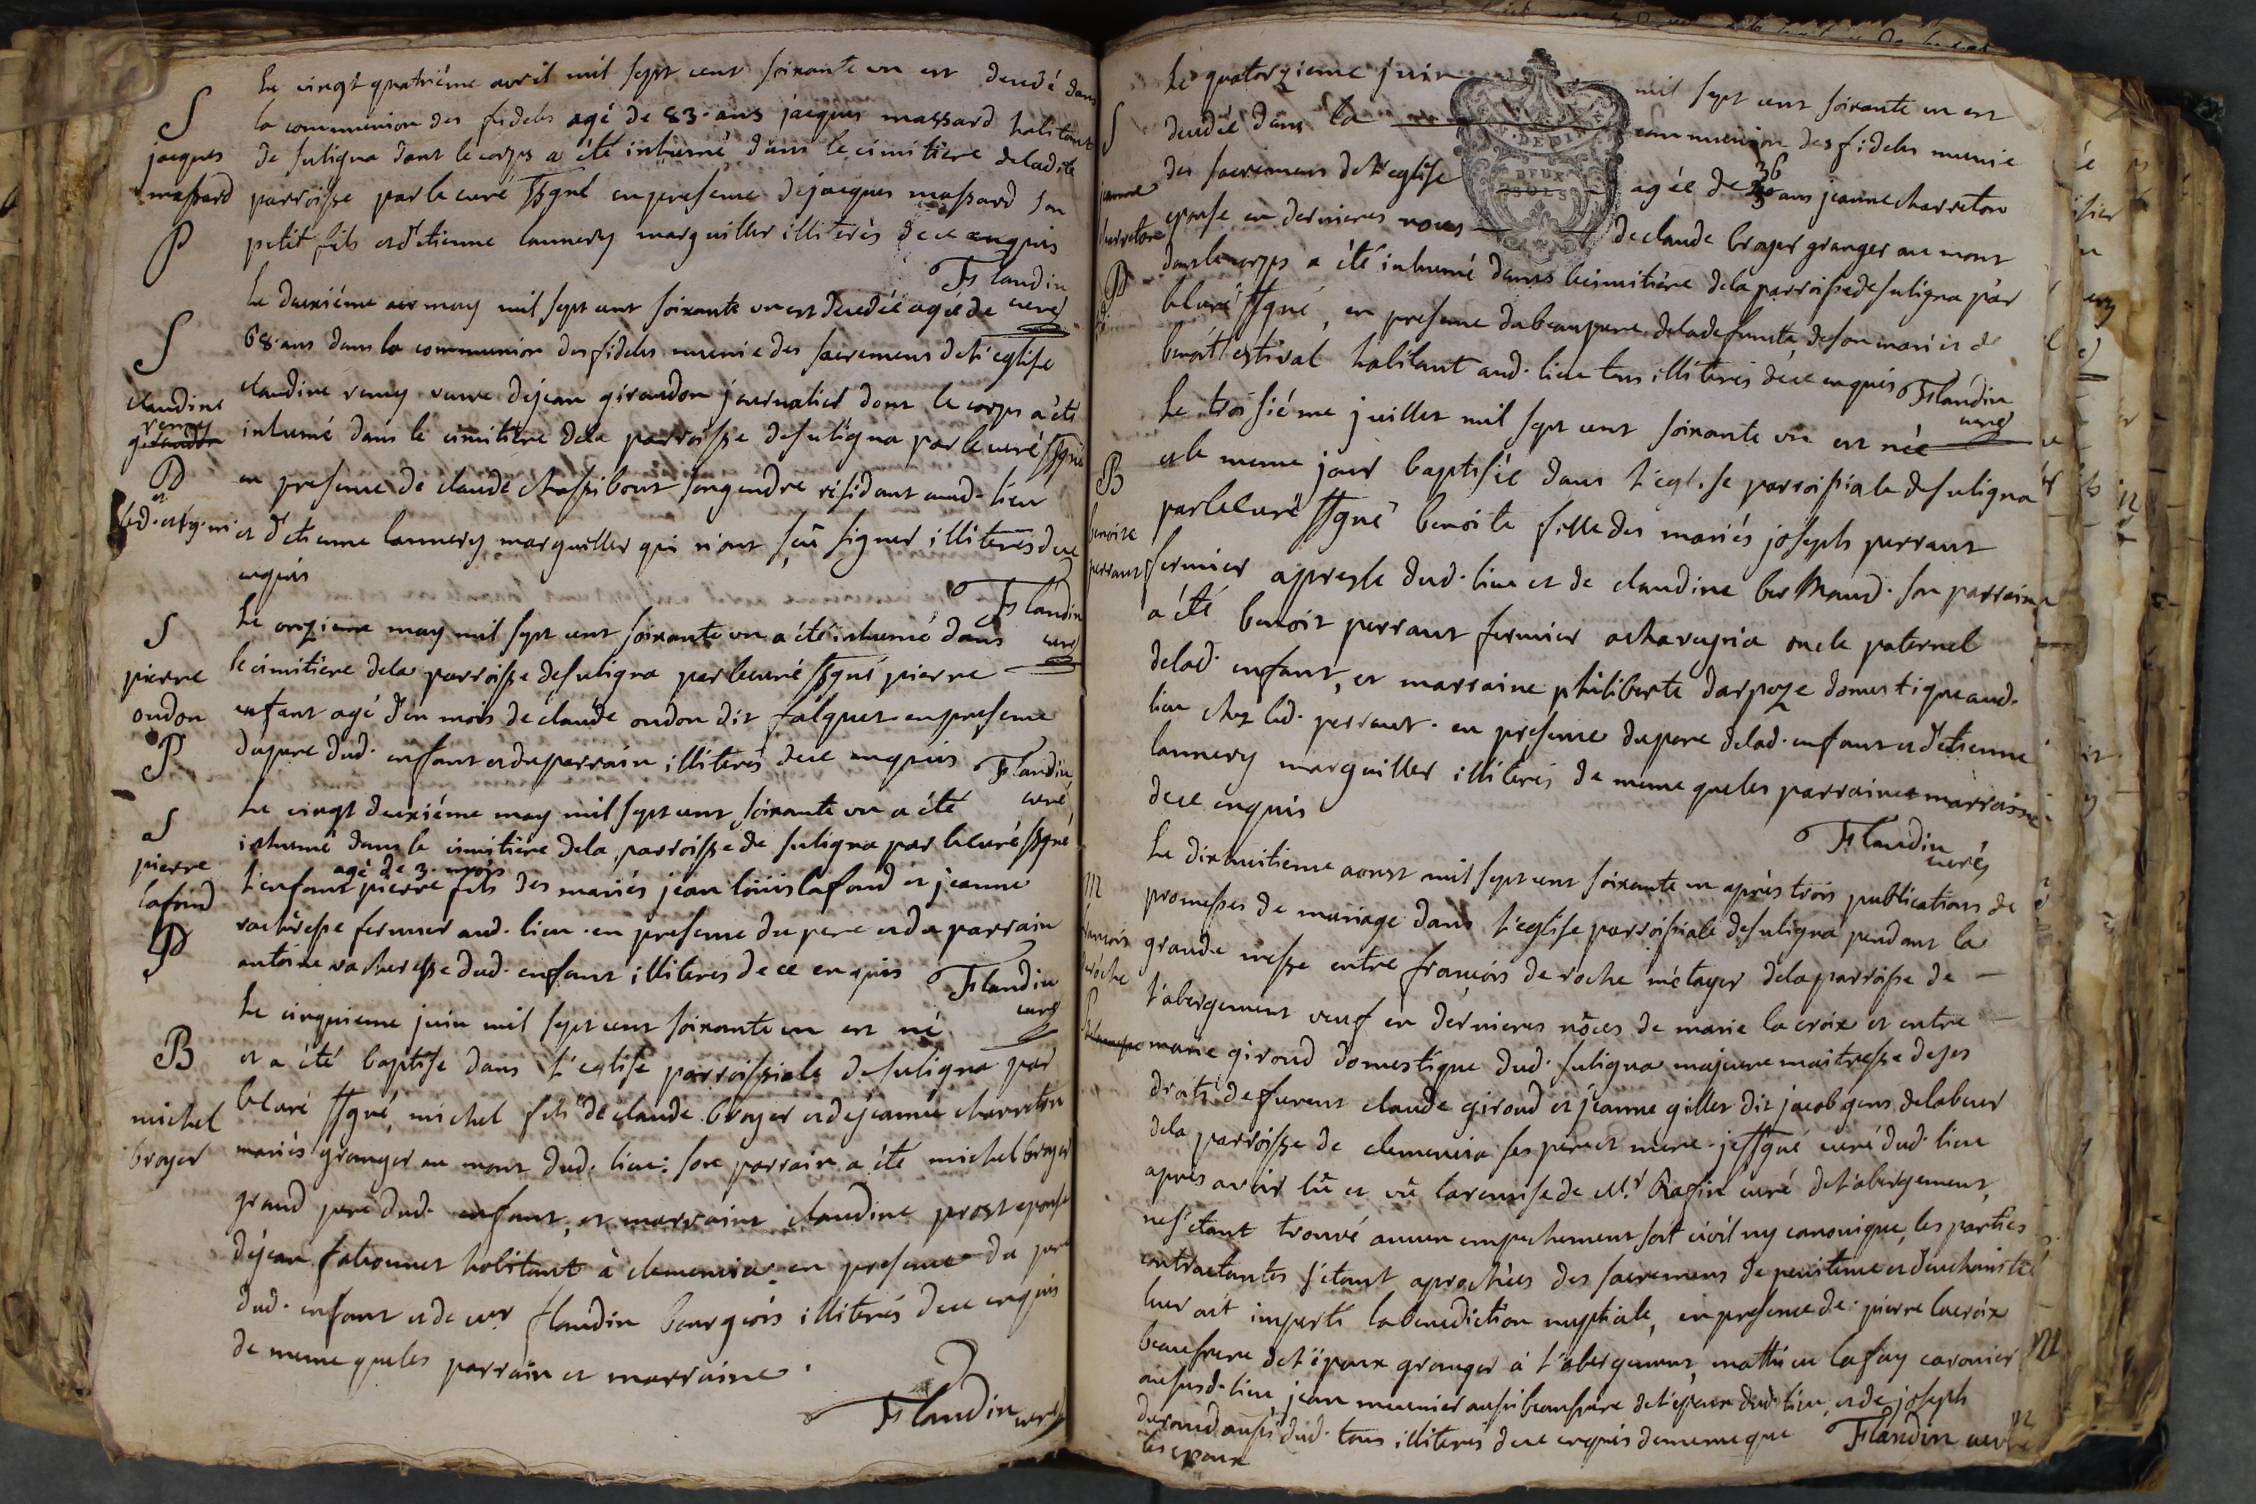 S
jacques
massard
P
Le vingt quatriéme avril mil sept cent soixante un est decedé dans
la communion des fideles agé de 83. ans jacques massard habitant
de suligna dont le corps a été inhumé dans le cimitiere de ladite
parroisse par le curé ssgné en presence de jacques massard son
petit fils et d'etienne lannery marguiller illiterés de ce enquis
Flandin
curé
S
claudine
remy
P
Le deuxiéme may mil sept cent soixante un est decedée agée de
68. ans dans la communion des fideles munie des sacremens de l'eglise
claudine remy veuve de jean giraudon journalier dont le corps a été
inhumé dans le cimitiere de la parroisse de suligna par le curé ssgné
en presence de claude chassibout son gendre résidant aud. lieu
et d'etienne lannery marguiller qui n'ont sçû signer illiterés de ce
enquis
Flandin
curé
S
pierre
oudon
P
Le onzieme may mil sept cent soixante un a été inhumé dans
le cimitiere de la parroisse de suligna par le curé ssgné pierre
enfant agé d'un mois de claude oudon dit falquet en presence
du pere dud. enfant et du parrain illiterés de ce enquis
Flandin
curé
S
pierre
lafond
P
Le vingt deuxiéme may mil sept cent soixante un a été
inhumé dans le cimitiére de la parroisse de suligna par le curé ssgné
agé de 3 mois
l'enfant pierre fils des mariés jean loüis lafond et jeanne
vacheresse fermier aud. lieu en presence du pere et du parrain
antoine vacheresse dud. enfant illiterés de ce enquis
Flandin
curé
B
michel
broyer
Le cinquieme juin mil sept cent soixante un est né
et a été baptise dans l'eglise parroissiale de suligna par
le curé ssgné, michel fils de claude broyer et de jeanne charreton
mariés granger au mont dud. lieu: son parrain a été michel broyer
grand pere dud. enfant, et marraine claudine prost epouse
de jean habitant à clemencia en presence du pere
dud. enfant et de flandin bourgeois illiterés de ce enquis
de meme que les parrain et marraine.
Flandin curé
S
jeanne
charreton
P
Le quatorzieme juin mil sept cent soixante un est
decedée dans la communion des fideles munie
des sacremens de l'eglise agée de 36 ans jeanne charreton
DEUX
SOLS
epouse en dernieres noces de claude broyer granger au mont
dont le corps a été inhumé dans le cimitiére de la parroisse de suligna par
le curé ssgné, en presence du beaupere de la defunte, de son mari et de
benoit estival habitant aud. lieu tous illiterés de ce enquis Flandin
curé
B
benoite
perraut
Le troisiéme juillet mil sept cent soixante un est née
et le meme jour baptisée dans l'eglise parroissiale de suligna
par le curé ssgné benoite fille des mariés joseph perraut
fermier dud. lieu et de claudine son parrain
a été benoit perraut fermier a oncle paternel
de lad. enfant, et marraine philiberte darpoze domestique aud.
lieu chez led. perraut. en presence du pere de lad. enfant et d'etienne
lannery marguiller illiterés de meme que les parrain et marraine
de ce enquis
Flandin
curé
M
françois
deroche
Le dix huitieme aoust mil sept cent soixante un après trois publications de
promesses de mariage dans l'eglise parroissiale de suligna pendant la
grande messe entre françois de roche métayer de la parroisse de
l'abergement veuf en dérnieres nôces de marie la croix et entre
marie giroud domestique dud. suligna majeure maitresse de ses
droits de furent claude giroud et jeanne gillet dit jacob gens de labeur
de la parroisse de clemencia ses pere et mere. je ssgné curé dud. lieu
après avoir lû et vû la remise de Mr. Rafin curé de l'abergement,
ne s'etant trouvé aucun empechement soit civil ny canonique, les parties
contractantes s'etant aprochées des sacremens de penitence et d'euchairistie
leur ait imparti la benediction nuptiale, en presence de pierre lacroix
beaufrere de l'époux granger à l'abergement, mathieu lafay
au susd. lieu, jean meunier aussi beaufrere de l'epoux dud. lieu, et de joseph
durand aussi dud. tous illiterés de ce enquis de meme que Flandin curé
les epoux